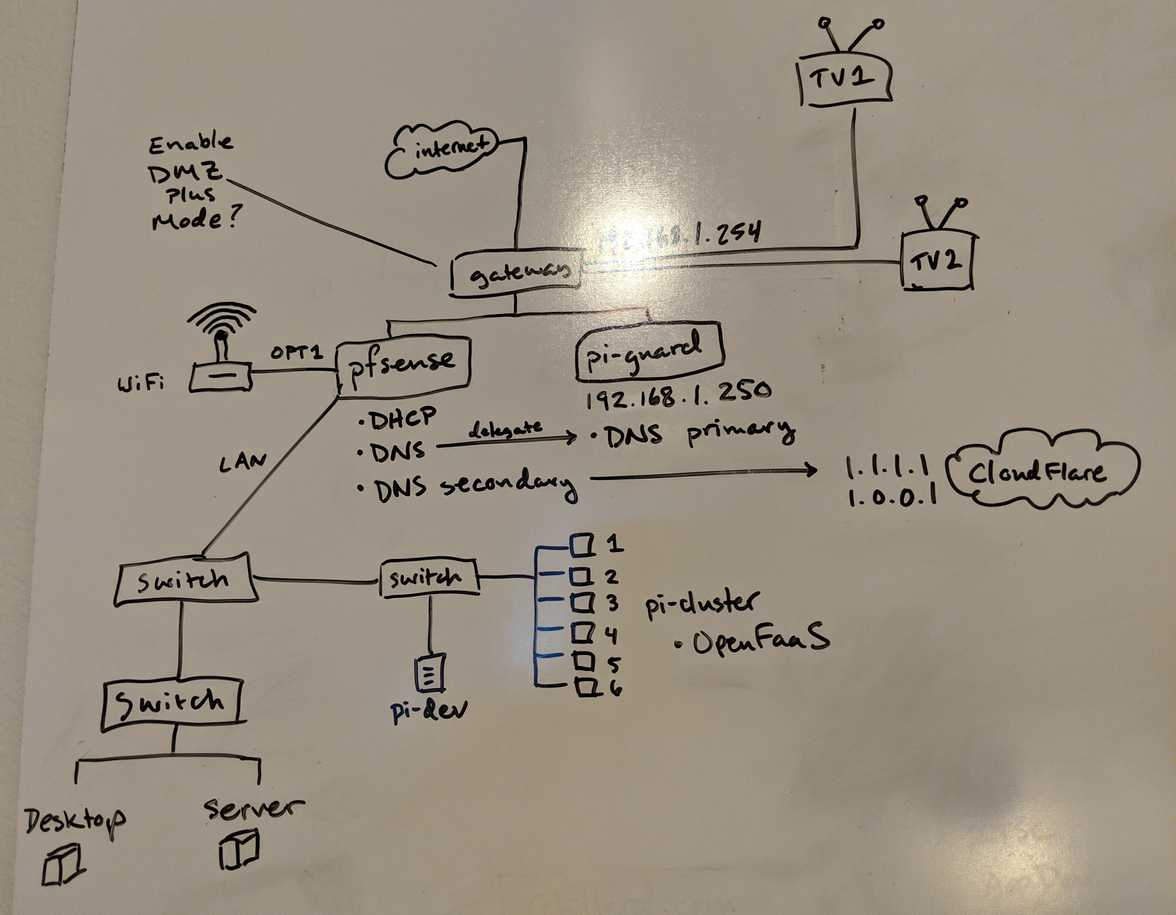 TV1
Enable
DMZ
Plus
Mode?
internet
192.168.1.254
gateway
TV2
OPT1
WiFi
pfsense
pi-guard
192.168.1.250
• DHCP
• DNS
delegate
• DNS primary
LAN
• DNS secondary
1.1.1.1
1.0.0.1
CloudFlare
Switch
switch
1
2
3
4
5
6
pi-cluster
• OpenFaaS
Switch
pi-dev
Desktop
Server